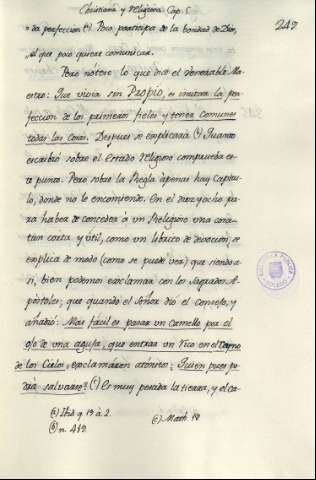 Christiana y Religiosa Cap. 5
249
da perfeccion (a) Poco participa de la bondad de Dios,
al que poco quieren comunicar.
Pero nótese lo que dice el Venerable Ma-
estro: Que vivir sin Propio, es imitar la per-
fección de los primeros fieles y tener comunes
todas las cosas. Despues se explicará (b) Quanto
escribió sobre el Estado Religioso comprueba es-
te punto. Pero sobre la Regla apenas hay Capitu-
lo, donde no le encomiende. En el diez y ocho pa-
ra haber de conceder a un Religioso una cosa
tan corta y útil, como un librico de devoción, se
explica de modo (como se puede ver) que siendo a-
si, bien podemos exclamar con los Sagrados A-
póstoles; que quando el Señor dió el consejo, y
añadió: Mas fácil es pasar un Camello por el
ojo de una aguja, que entrar un rico en el Reyno
de los Cielos, exclamáron atónitos: ¿Quien pues po-
drá salvarse? (c) Es muy pesada la tierra, y el ca-
(a) Ibid q. 19 à 2.
(b) n. 412.
(c) Math. 19